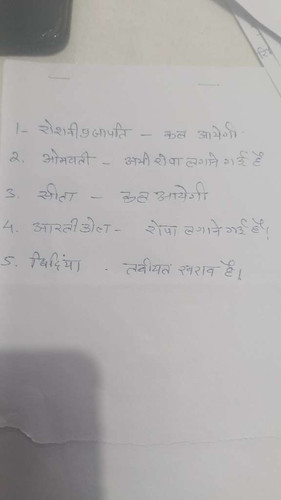 1- रोशनी प्रजापति - कल आयेगी
2. भोमवती - अभी रोपा लगाने गई है
3. सीता - कल आयेगी
4. आरती कोल - रोपा लगाने गई है।
5. तबीयत खराब है।